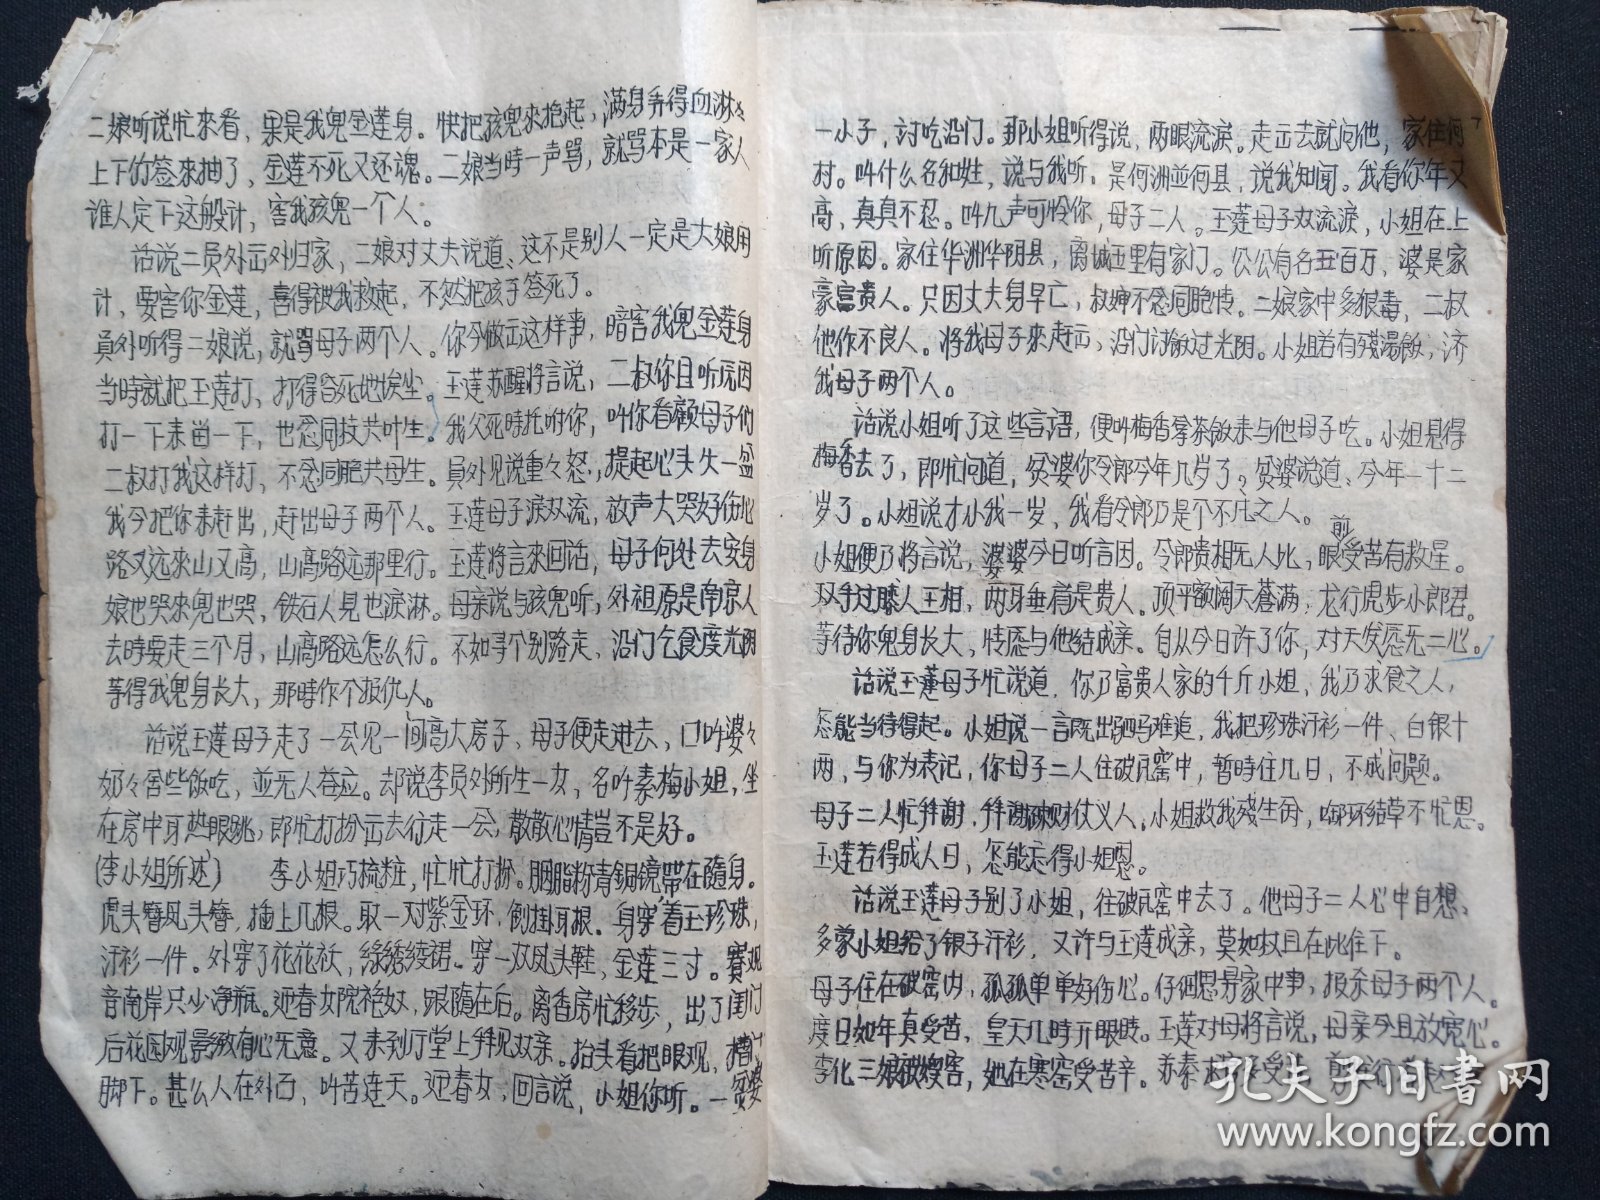 二娘听说忙来看，果是我儿金莲身。快把孩儿来抱起，满身弄得血淋々
上下的签来抽了，金莲不死又还魂。二娘当時一声骂，就骂本是一家人
谁人定下这般计，害我孩儿一个人。
话说二员外出外归家，二娘对丈夫说道、这不是别人一定是大娘用
计，要害你金莲，喜得被我救起，不然把孩子签死了。
員外听得二娘说，就骂母子两个人。你今做出这样事，暗害我儿金莲身
当時就把玉莲打，打得昏死地埃尘。玉莲苏醒将言说，二叔你且听原因
打一下来由一下，也念同枝共叶生。我父死時托咐你，叫你看顾母子们
二叔打我这样打，不念同胞共母生。員外见说重々怒，提起心头火一盆
我今把你来赶出，赶出母子两个人。玉莲母子泪双流，放声大哭好伤心
路又远来山又高，山高路远那里行。玉莲将言来回话，母子何处去安身
娘也哭来儿也哭，铁石人見也淚淋。母亲说与孩儿听，外祖原是南京人
去時要走三个月，山高路远怎么行。不如寻个别路走，沿门乞食度光阴
等得我儿身长大，那時作个报仇人。
话说玉莲母子走了一会见一间高大房子、母子便走进去，口吟婆々
奶々舍些饭吃，並无人答应。却说李员外所生一女，名叶素梅小姐，坐
在房中耳热眼跳，即忙打扮出去行走一会，散散心情豈不是好。
(李小姐所述) 李小姐巧梳粧，忙忙打扮。胭脂粉青銅镜，带在隨身。
虎头簪凤头簪，插上几根。取一对紫金环，倒掛耳根。身穿着玉珍珠，
汗衫一件。外穿了花花袄，綠绣綾裙。穿一双凤头鞋，金莲三寸。赛观
音南岸只少净瓶。迎春女院袍奴，跟隨在后。离香房忙移步，出了闺门
后花园观景致有心无意。又来到厅堂上拜见双亲。抬头看把眼观，槽门
脚下。甚么人在外面，叫苦连天。迎春女，回言说，小姐你听。一贫婆
一小子，讨吃沿门。那小姐听得说，两眼流淚。走出去就问他，家住何
村。叫什么名和姓，说与我听，是何洲並何县，说我知闻。我看你年又
高，真真不忍。叫几声可怜你，母子二人。玉莲母子双流淚，小姐在上
听原因。家住华洲华阴县，离城五里有家门。公公有名丑百万，婆是家
豪富贵人。只因丈夫身早亡，叔婶不念同胞情。二娘家中多狠毒，二叔
他作不良人。将我母子来赶出，沿门讨飯过光阴。小姐若有残湯飯，济
我母子两个人。
话说小姐听了这些言語，便叫梅香拿茶飯来与他母子吃。小姐見得
梅香去了，即忙问道，贫婆你令郎今年几岁了？贫婆说道、今年一十二
岁了。小姐说才小我一岁，我看令郎乃是个不凡之人。
小姐便乃将言说，婆婆今日听言因。令郎贵相无人比，眼前受苦有救星。
双手过膝人王相，两身垂肩是贵人。顶平额阔天蒼满，龙行虎步小郎君。
等待你儿身长大，情愿与他结成亲。自从今日许了你，对天发愿无二心。
话说玉莲母子忙说道，你乃富贵人家的千斤小姐，我乃求食之人，
怎能当待得起。小姐说一言既出驷马难追，我把珍珠汗衫一件、白银十
两，与你为表记，你母子二人住破瓦窑中，暂時住几日，不成问题。
母子二人忙拜谢，拜谢疎财仗义人，小姐救我殘生命，啣环结草不忙恩。
玉莲若得成人日，怎能忘得小姐恩。
话说玉莲母子别了小姐，往破瓦窑中去了。他母子二人心中自想、
多蒙小姐给了银子汗衫，又许与玉莲成亲，莫如权且在此住下。
母子住在破窑内，孤孤单单好伤心。仔细思男家中事，报杀母子两个人。
度日如年真受苦，皇天几時开眼睁。玉莲对母将言说，母亲今且放宽心。
李化三娘被嫂害，她在寒窑受苦辛。苏秦
孔夫子旧書网
www.kongfz.com